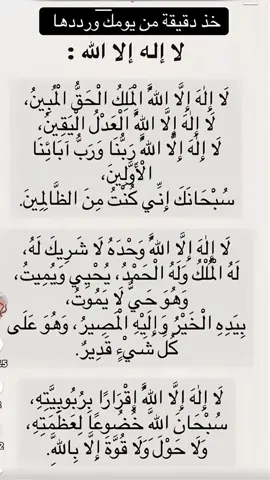 خذ دقيقة من يومك ورددها
لا إله إلا الله :
لَا إِلٰهَ إِلَّا اللهُ الْمَلِكُ الْحَقُّ الْمُبِينُ،
لَا إِلٰهَ إِلَّا اللهُ الْعَدْلُ الْيَقِينُ،
لَا إِلٰهَ إِلَّا اللهُ رَبُّنَا وَرَبُّ آبَائِنَا
الْأَوَّلِينَ،
سُبْحَانَكَ إِنِّي كُنْتُ مِنَ الظَّالِمِينَ.
لَا إِلٰهَ إِلَّا اللهُ وَحْدَهُ لَا شَرِيكَ لَهُ،
لَهُ الْمُلْكُ وَلَهُ الْحَمْدُ، يُحْيِي وَيُمِيتُ،
وَهُوَ حَيٌّ لَا يَمُوتُ،
بِيَدِهِ الْخَيْرُ وَإِلَيْهِ الْمَصِيرُ، وَهُوَ عَلَى
كُلِّ شَيْءٍ قَدِيرٌ.
لَا إِلٰهَ إِلَّا اللهُ إِقْرَارًا بِرُبُوبِيَّتِهِ،
سُبْحَانَ اللهِ خُضُوعًا لِعَظَمَتِهِ،
وَلَا حَوْلَ وَلَا قُوَّةَ إِلَّا بِاللهِ.